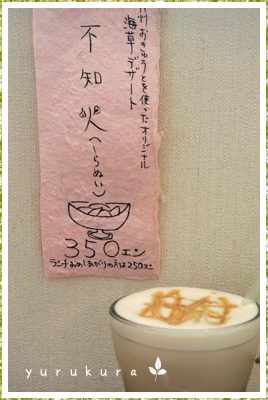 州おきゅうとを使ったオリジナル
海草デザート
不知火(しらぬい)
350エン
ランチおめしあがりの方は250エン
yurukura